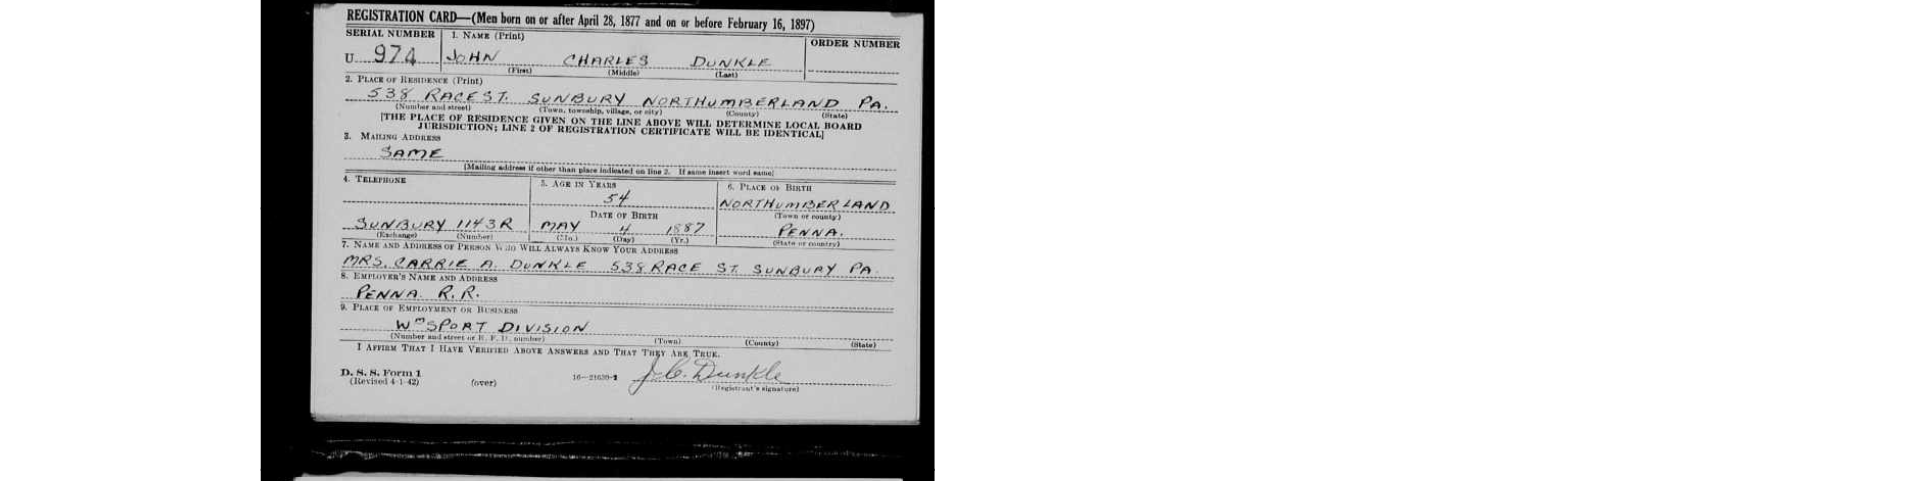 REGISTRATION CARD—(Men born on or after April 28, 1877 and on or before February 16, 1897)
SERIAL NUMBER 1. NAME (Print) ORDER NUMBER
U 974 JOHN CHARLES DUNKLE
(First) (Middle) (Last)
2. PLACE OF RESIDENCE (Print)
538 RACE ST. SUNBURY NORTHUMBERLAND PA.
(Number and street) (Town, township, village, or city) (County) (State)
[THE PLACE OF RESIDENCE GIVEN ON THE LINE ABOVE WILL DETERMINE LOCAL BOARD
JURISDICTION; LINE 2 OF REGISTRATION CERTIFICATE WILL BE IDENTICAL]
3. MAILING ADDRESS
SAME
[Mailing address if other than place indicated on line 2. If same insert word same]
4. TELEPHONE 5. AGE IN YEARS 6. PLACE OF BIRTH
54 NORTHUMBERLAND
DATE OF BIRTH (Town or county)
SUNBURY 1143R MAY 4 1887 PENNA.
(Exchange) (Number) (Mo.) (Day) (Yr.) (State or country)
7. NAME AND ADDRESS OF PERSON WHO WILL ALWAYS KNOW YOUR ADDRESS
MRS. CARRIE A. DUNKLE 538 RACE ST. SUNBURY PA.
8. EMPLOYER'S NAME AND ADDRESS
PENNA. R.R.
9. PLACE OF EMPLOYMENT OR BUSINESS
WmSPORT DIVISION
(Number and street or R. F. D. number) (Town) (County) (State)
I AFFIRM THAT I HAVE VERIFIED ABOVE ANSWERS AND THAT THEY ARE TRUE.
D. S. S. Form 1
(Revised 4-1-42) (over) 16—21630-2 J. C. Dunkle
(Registrant's signature)